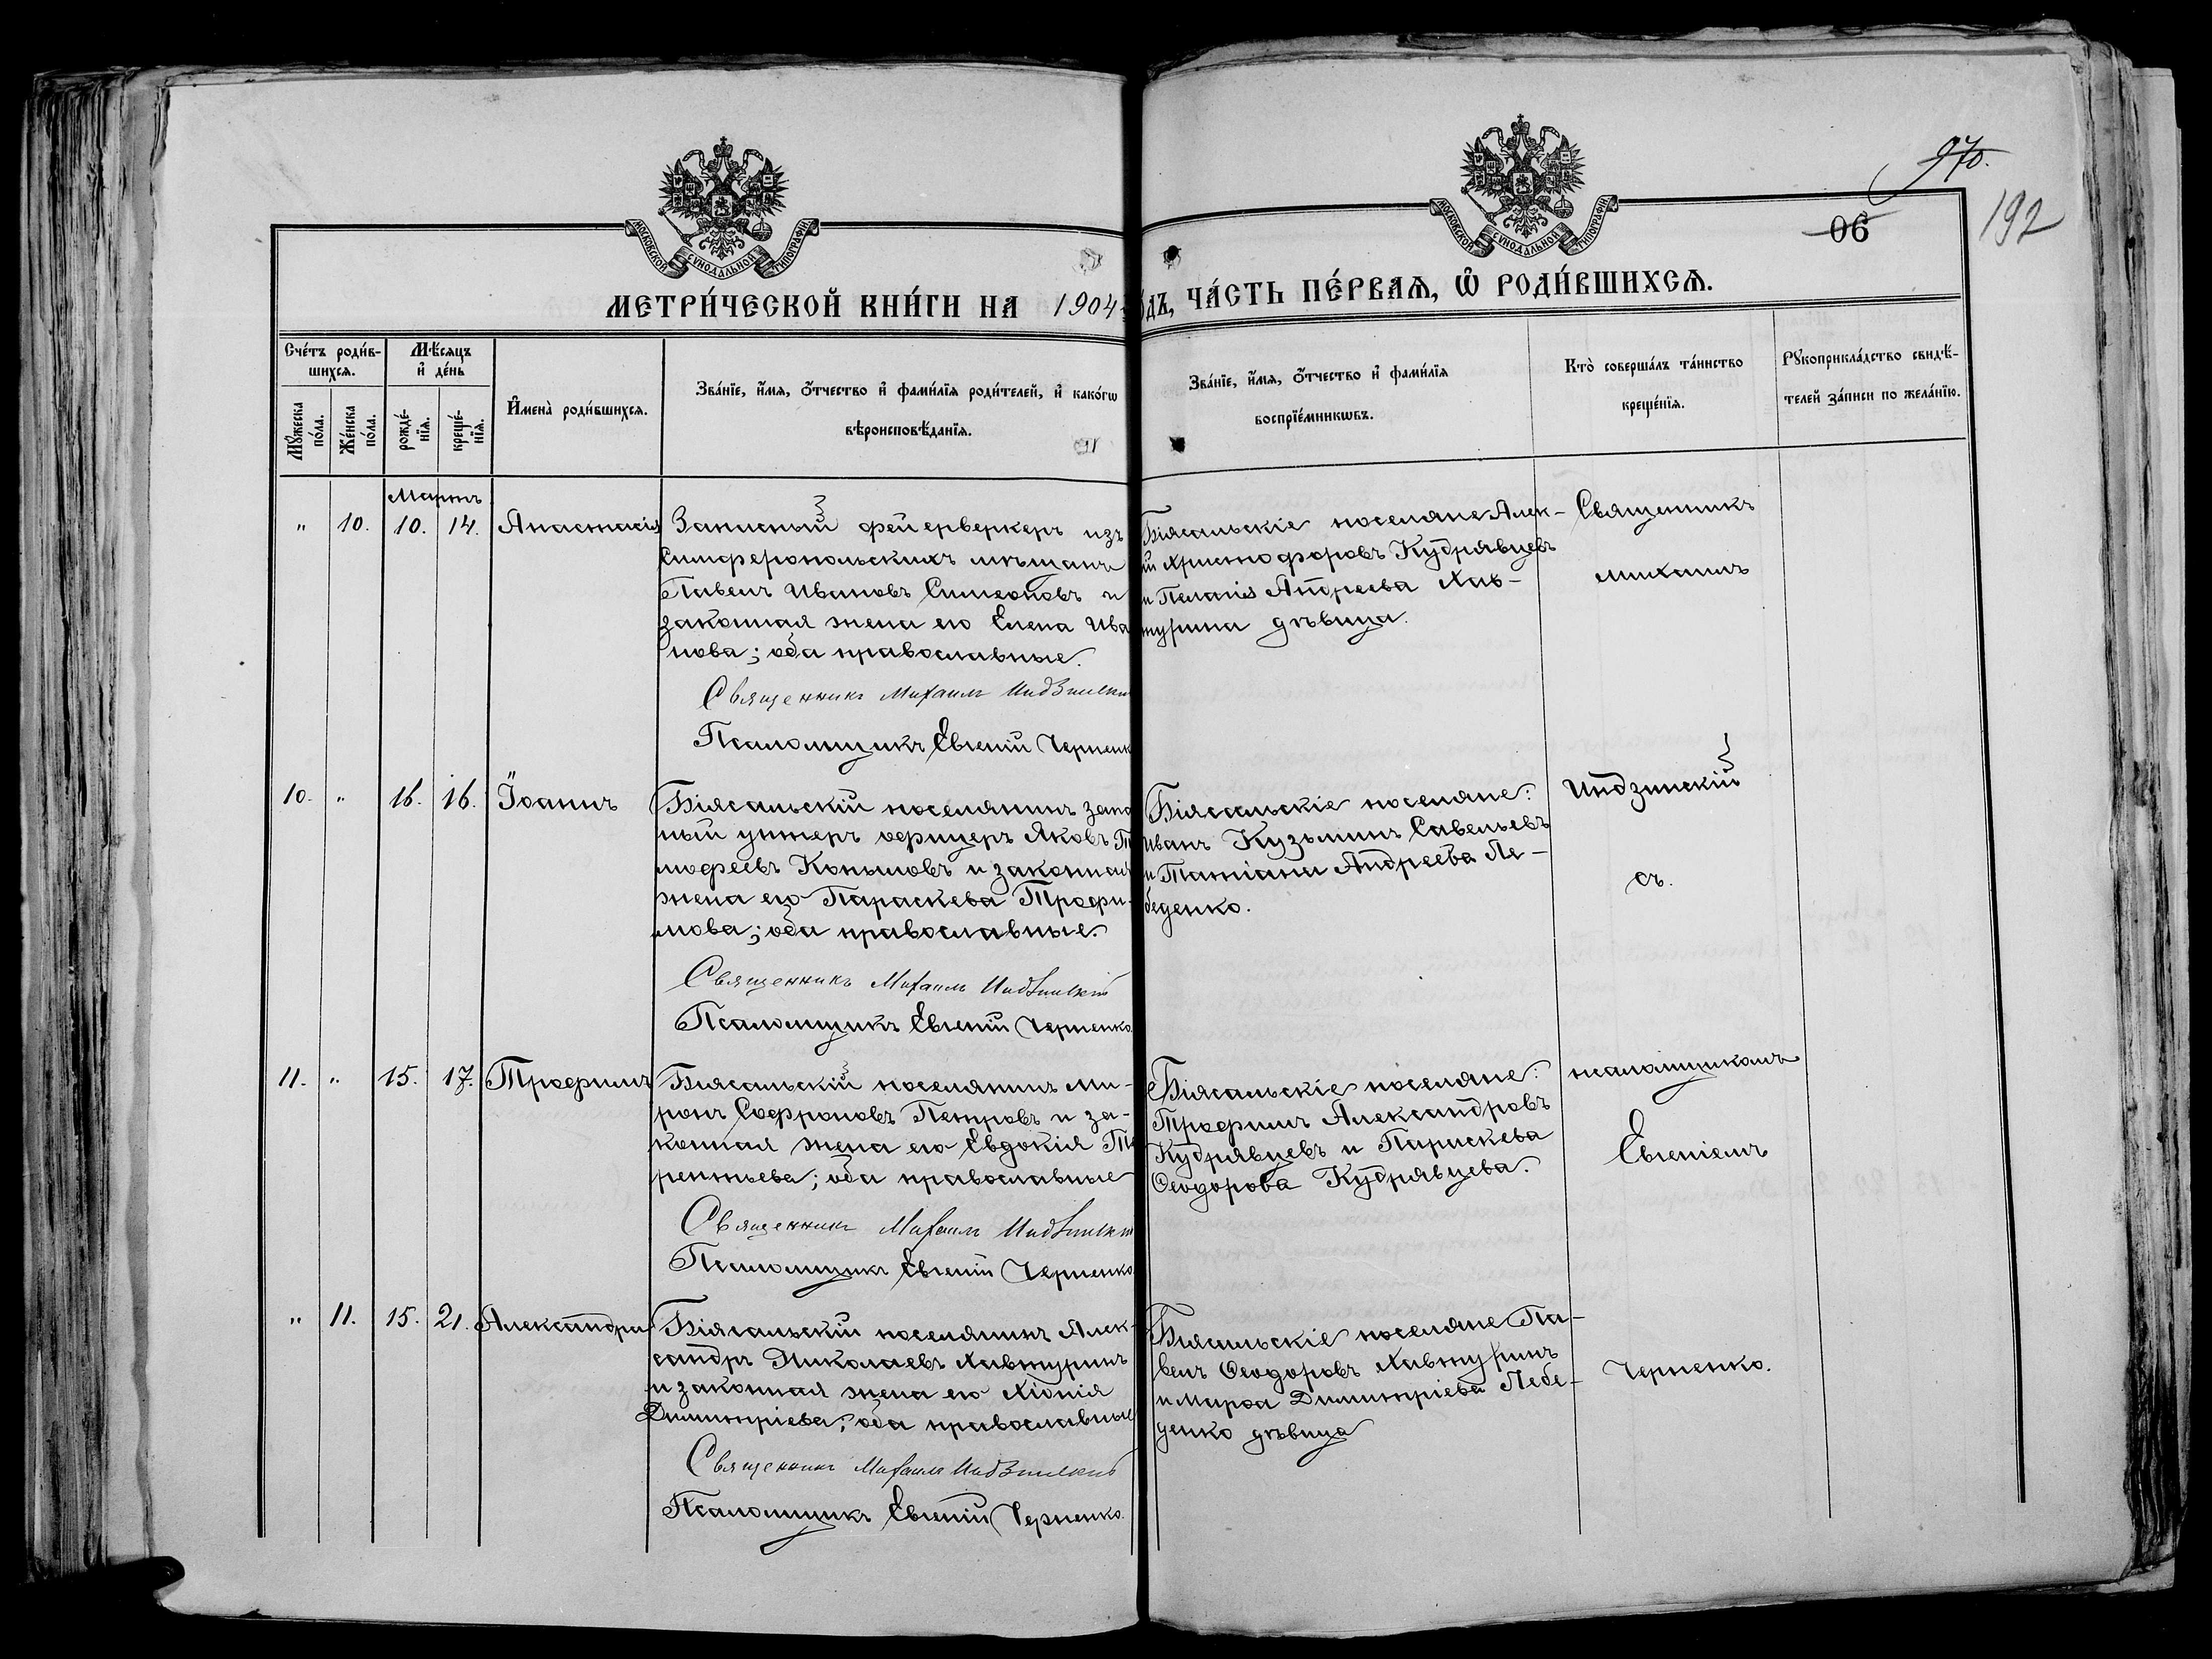 970.
192
06
МОСКОВСКОЙ СѴНОДАЛЬНОЙ ТИПОГРАФІИ
МОСКОВСКОЙ СѴНОДАЛЬНОЙ ТИПОГРАФІИ
МЕТРИ́ЧЕСКОЙ КНИ́ГИ НА 1904
ЧА́СТЬ ПЕ́РВАѦ, Ѿ РОДИ́ВШИХСѦ.
Сче́тъ роди́в-
шихсѧ.
Мꙋжеска по́ла.
Же́нска по́ла.
Мѣ́сѧцъ и҆ де́нь
рожде́-
нїѧ.
креще́-
нїѧ.
И҆мена̀ роди́вшихсѧ.
Зва́нїе, и҆́мѧ, ѻ҆́тчество и҆ фами́лїѧ роди́телей, и҆ како́гѡ
вѣроисповѣ́данїѧ.
Зва́нїе, и҆́мѧ, ѻ҆́тчество и҆ фами́лїѧ
воспрїе́мникѡвъ.
Кто̀ соверша́лъ та́инство
креще́нїѧ.
Рꙋкоприкла́дство свидѣ́-
телей за́писи по жела́нїю.
Мартъ
" 10. 10. 14. Анастасія
Запасный фейерверкеръ изъ
Симферопольскихъ мѣщанъ
Павелъ Ивановъ Симеоновъ и
законная жена его Елена Ива
нова; оба православные.
Священникъ Михаилъ Индзинскій
Псаломщикъ Евгеній Черненк
Біясальскіе поселяне Алек-
ѣй Христофоровъ Кудрявцевъ
и Пелагія Андреева Хав-
турина дѣвица.
Священникъ
Михаилъ
Индзинскій
съ
псаломщикомъ
Евгеніемъ
Черненко.
10. " 16. 16. Іоаннъ
Біясальскій поселянинъ запа
ный унтеръ офицеръ Яковъ Ти
мофеевъ Копыловъ и законная
жена его Параскева Трофи-
мова; оба православные.
Священникъ Михаилъ Индзинскій
Псаломщикъ Евгеній Черненко
Біясальскіе поселяне:
Иванъ Кузьминъ Савельевъ
и Татіана Андреева Ле-
беденко.
11. " 15. 17. Трофимъ
Біясальскій поселянинъ Ми-
ронъ Софроновъ Петровъ и за-
конная жена его Евдокія Те
рентьева; оба православные
Священникъ Михаилъ Индзинскій
Псаломщикъ Евгеній Черненко
Біясальскіе поселяне:
Трофимъ Александровъ
Кудрявцевъ и Параскева
Ѳеодорова Кудрявцева.
" 11. 15. 21. Александра
Біясальскій поселянинъ Алек-
сандръ Николаевъ Хавтуринъ
и законная жена его Хіонія
Димитріева; оба православные
Священникъ Михаилъ Индзинскій
Псаломщикъ Евгеній Черненко.
Біясальскіе поселяне Па-
велъ Ѳеодоровъ Хавтуринъ
и Марѳа Димитріева Лебе-
денко дѣвица